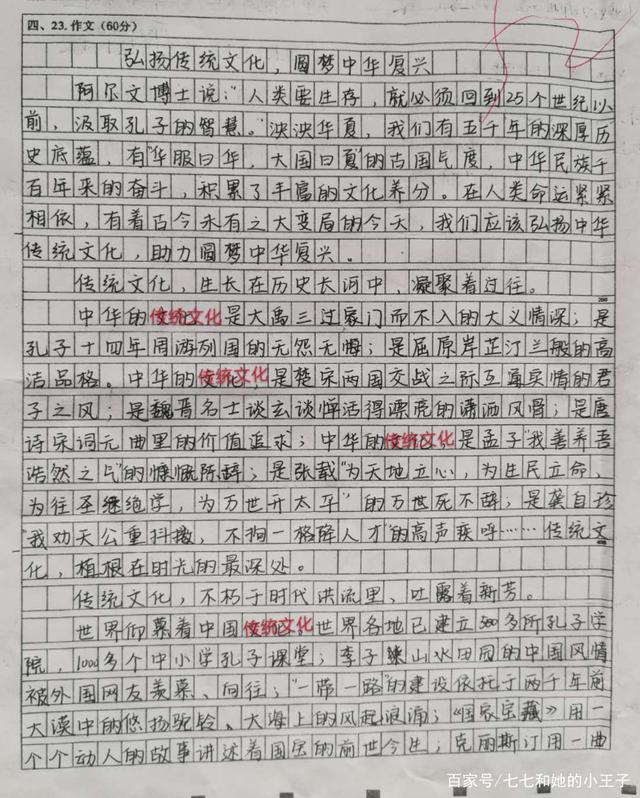 四、23.作文(60分)
弘扬传统文化，圆梦中华复兴
阿尔文博士说："人类要生存，就必须回到25个世纪以
前，汲取孔子的智慧。"泱泱华夏，我们有五千年的深厚历
史底蕴，有"华服曰华，大国曰夏"的古国气度，中华民族千
百年来的奋斗，积累了丰富的文化养分。在人类命运紧紧
相依，有着古今未有之大变局的今天，我们应该弘扬中华
传统文化，助力圆梦中华复兴。
传统文化，生长在历史长河中，凝聚着过往。
200
中华的传统文化是大禹三过家门而不入的大义情深；是
孔子十四年周游列国的无怨无悔；是屈原岸芷汀兰般的高
洁品格。中华的传统文化是楚宋两国交战之际互通实情的君
子之风；是魏晋名士谈玄谈惮活得漂亮的潇洒风骨；是唐
诗宋词元曲里的价值追求；中华的传统文化是孟子"我善养吾
浩然之气"的慷慨陈辞；是张载"为天地立心，为生民立命，
为往圣继绝学，为万世开太平"的万世死不辞；是龚自珍
"我劝天公重抖擞，不拘一格降人才"的高声疾呼……传统文
化，植根在时光的最深处。
传统文化，不朽于时代洪流里、吐露着新芳。
世界仰慕着中国传统文化世界各地已建立500多所孔子学
院，1000多个中小学孔子课堂；李子柒山水田园的中国风情
被外国网友羡慕、向往；"一带一路"的建设依托于两千年前
大漠中的悠扬驼铃、大海上的风起浪涌；《国家宝藏》用一
个个动人的故事讲述着国宝的前世今生；克丽斯汀用一曲
百家号/七七和她的小王子